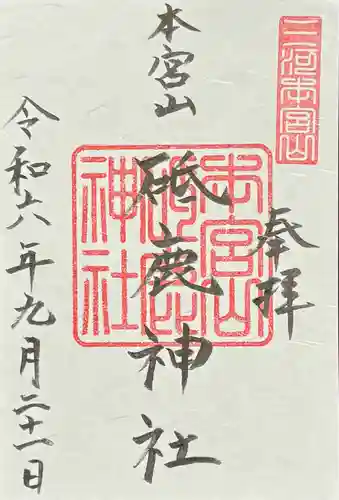 三河本宮山
奉拝
本宮山
砥鹿神社
本宮山
砥鹿
神社
令和六年九月二十一日